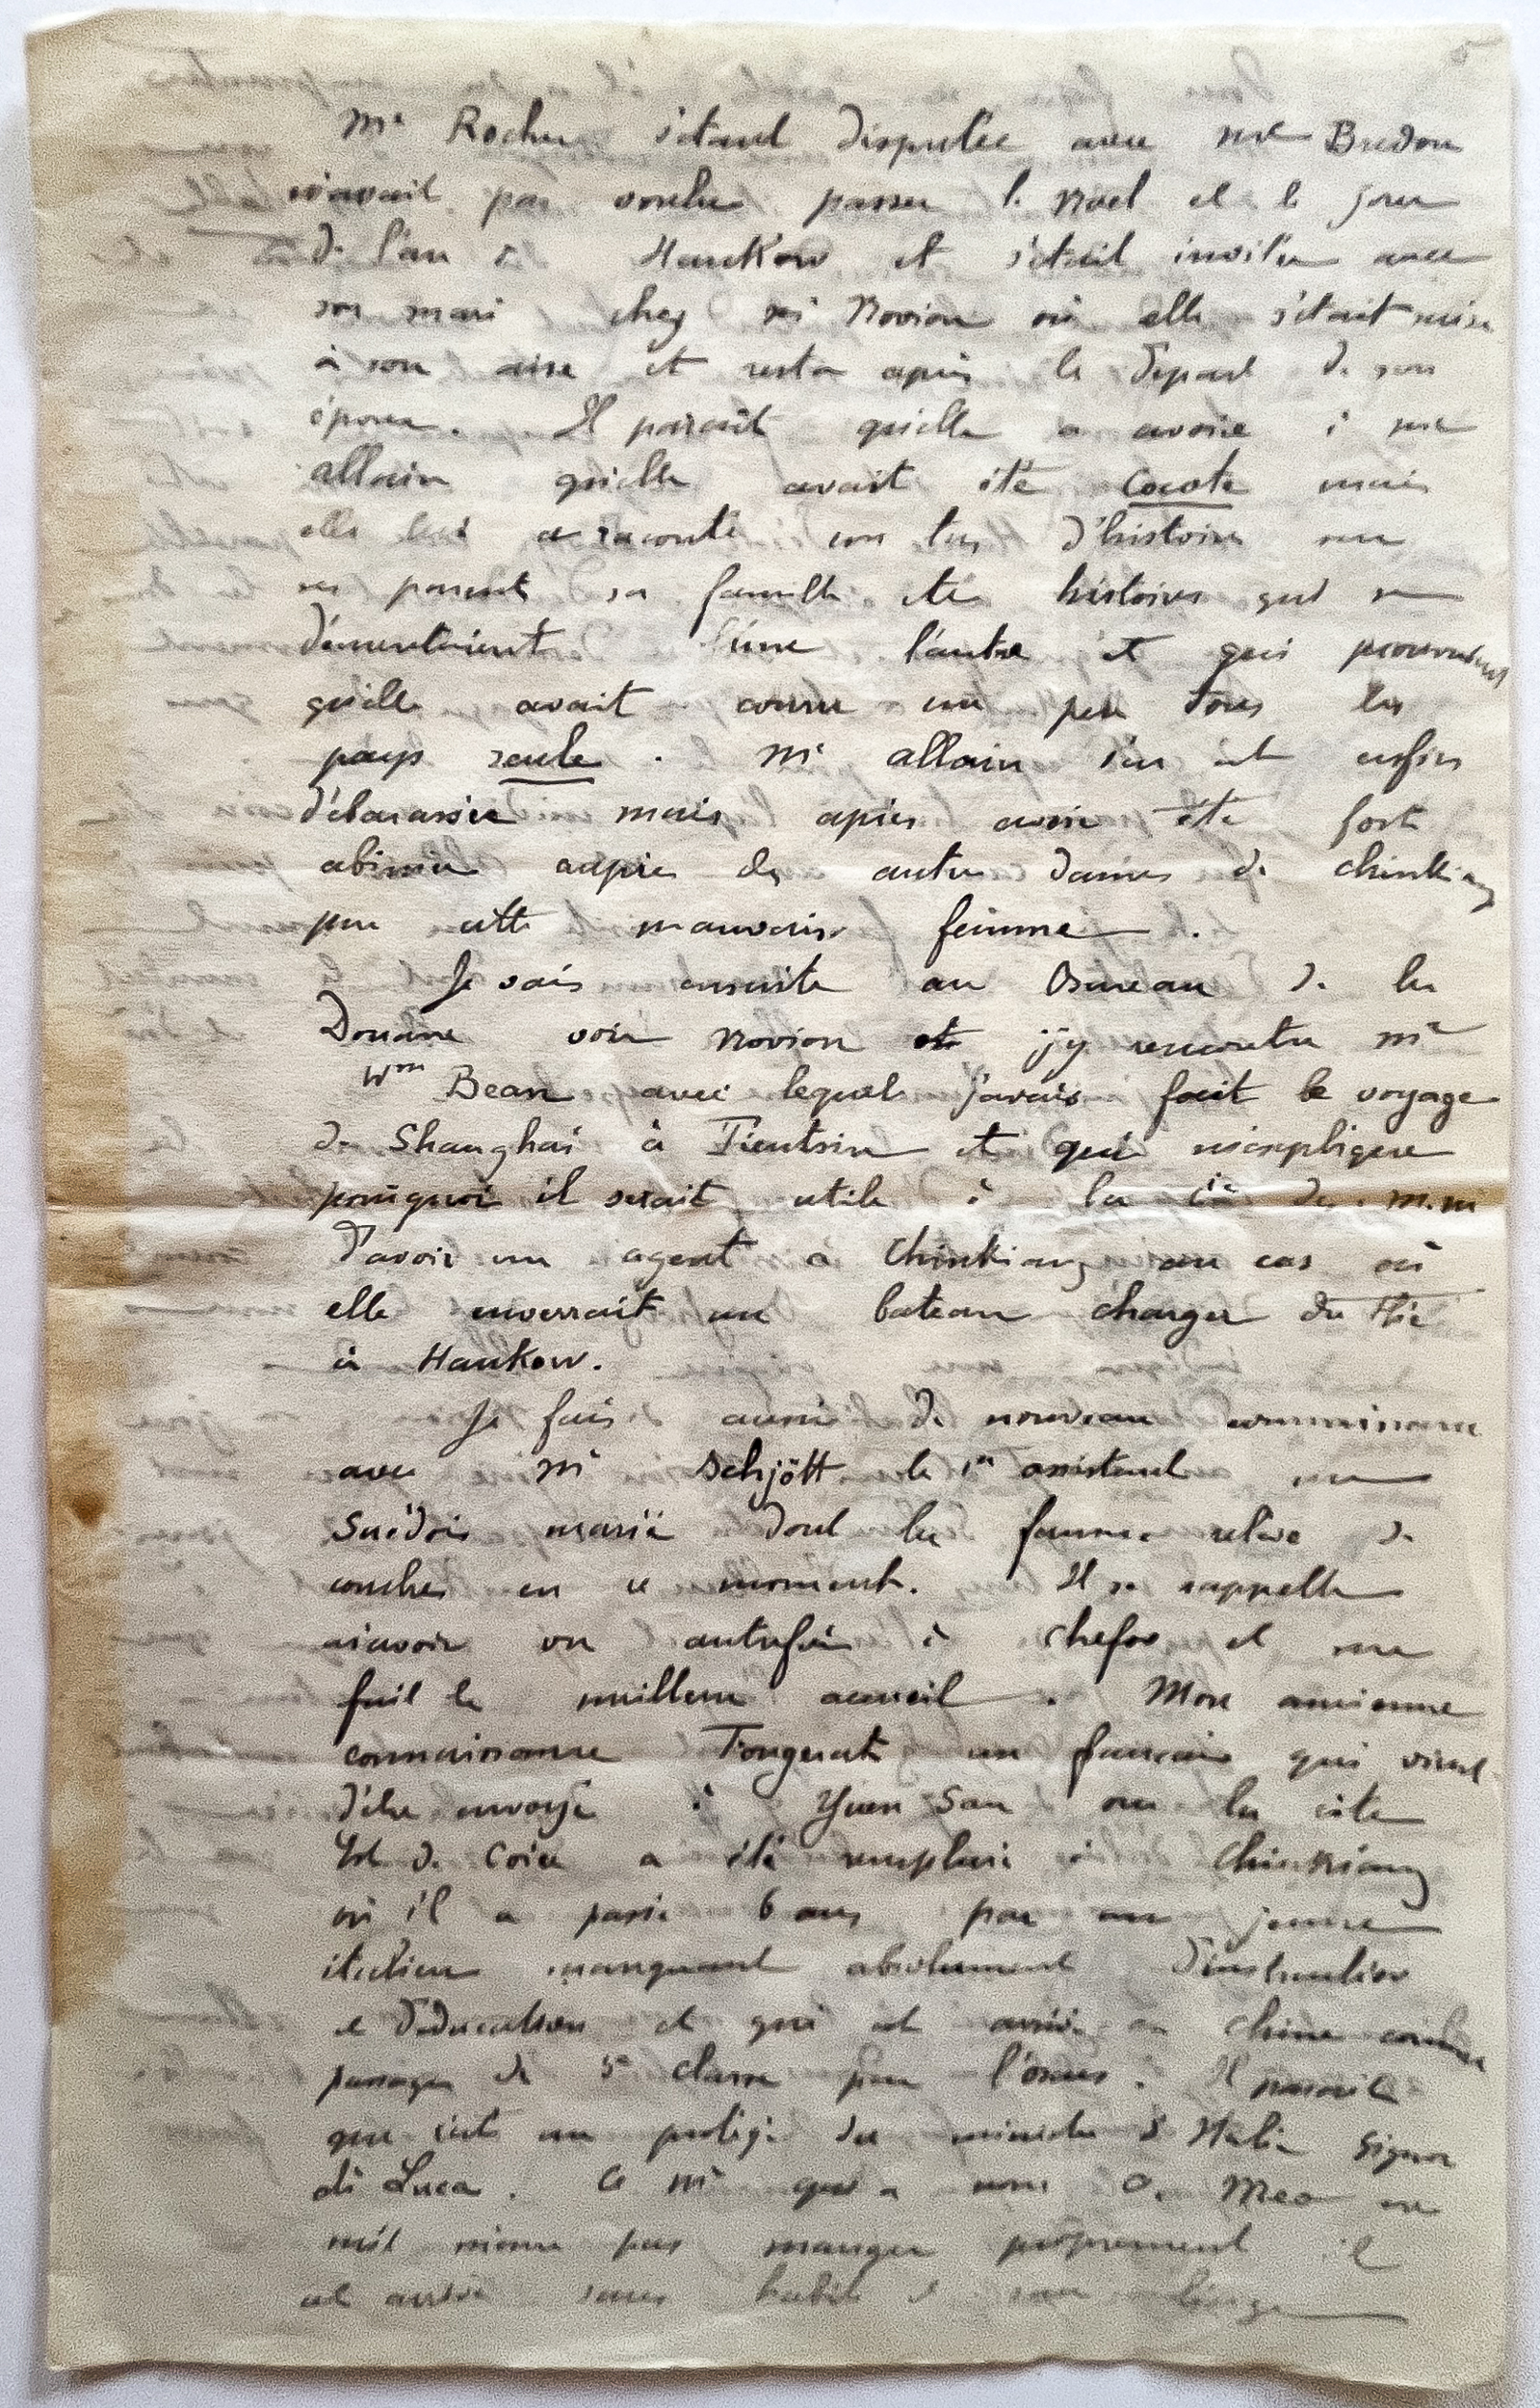 Me Rocher s'étant disputée avec me Bredon
n'avait pas voulu passer le Noel et le jour
de l'an à Hankow et s'était invitée avec
son mari chez les Novion où elle s'était mise
à son aise et resta après le départ de son
époux. Il parait qu'elle a avoué à me
allain qu'elle avait été cocote mais
elle lui a raconté un tas d'histoires sur
ses parents sa famille etc histoires qui se
démentaient l'une l'autre et qui prouvaient
qu'elle avait couru un peu tous les
pays seule. Me allain s'en est enfin
débarassée mais après avoir été fort
abimée auprès des autres dames de Chinkiang
par cette mauvaise femme.
Je vais ensuite au Bureau de la
Douane voir Novion et j'y rencontre mr
Wm Bean avec lequel j'avais fait le voyage
de Shanghai à Tientsin et qui m'explique
pourquoi il serait utile à la Cie des m.m
d'avoir un agent à Chinkiang au cas où
elle enverrait un bateau charger du thé
à Hankow.
Je fais aussi de nouveau connaissance
avec mr Schjött le 1er assistant un
Suédois marié dont la femme relève de
couches en ce moment. Il se rappelle
m'avoir vu autrefois à Chefoo et me
fait le meilleur accueil. Mon ancienne
connaissance Fougerat un français qui vient
d'être envoyé à Yuen San sur la côte
Est de Corée a été remplacé à Chinkiang
où il a passé 6 ans par un jeune
italien manquant absolument d'instruction
et d'éducation et qui est arrivé en Chine comme
passager de 5e classe par l'oxus. Il parait
que c'est un protégé du ministre d'Italie Signor
di Luca. Ce mr qui a nom O. Meo ne
sait même pas manger proprement il
est arrivé sans habits et sans linge